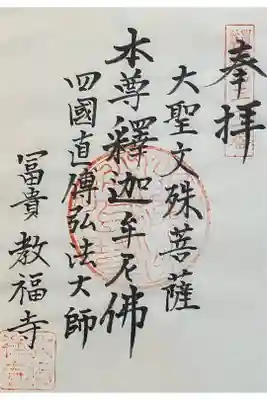 奉拝
大聖文殊菩薩
本尊釋迦牟尼佛
四國直傳弘法大師
冨貴教福寺